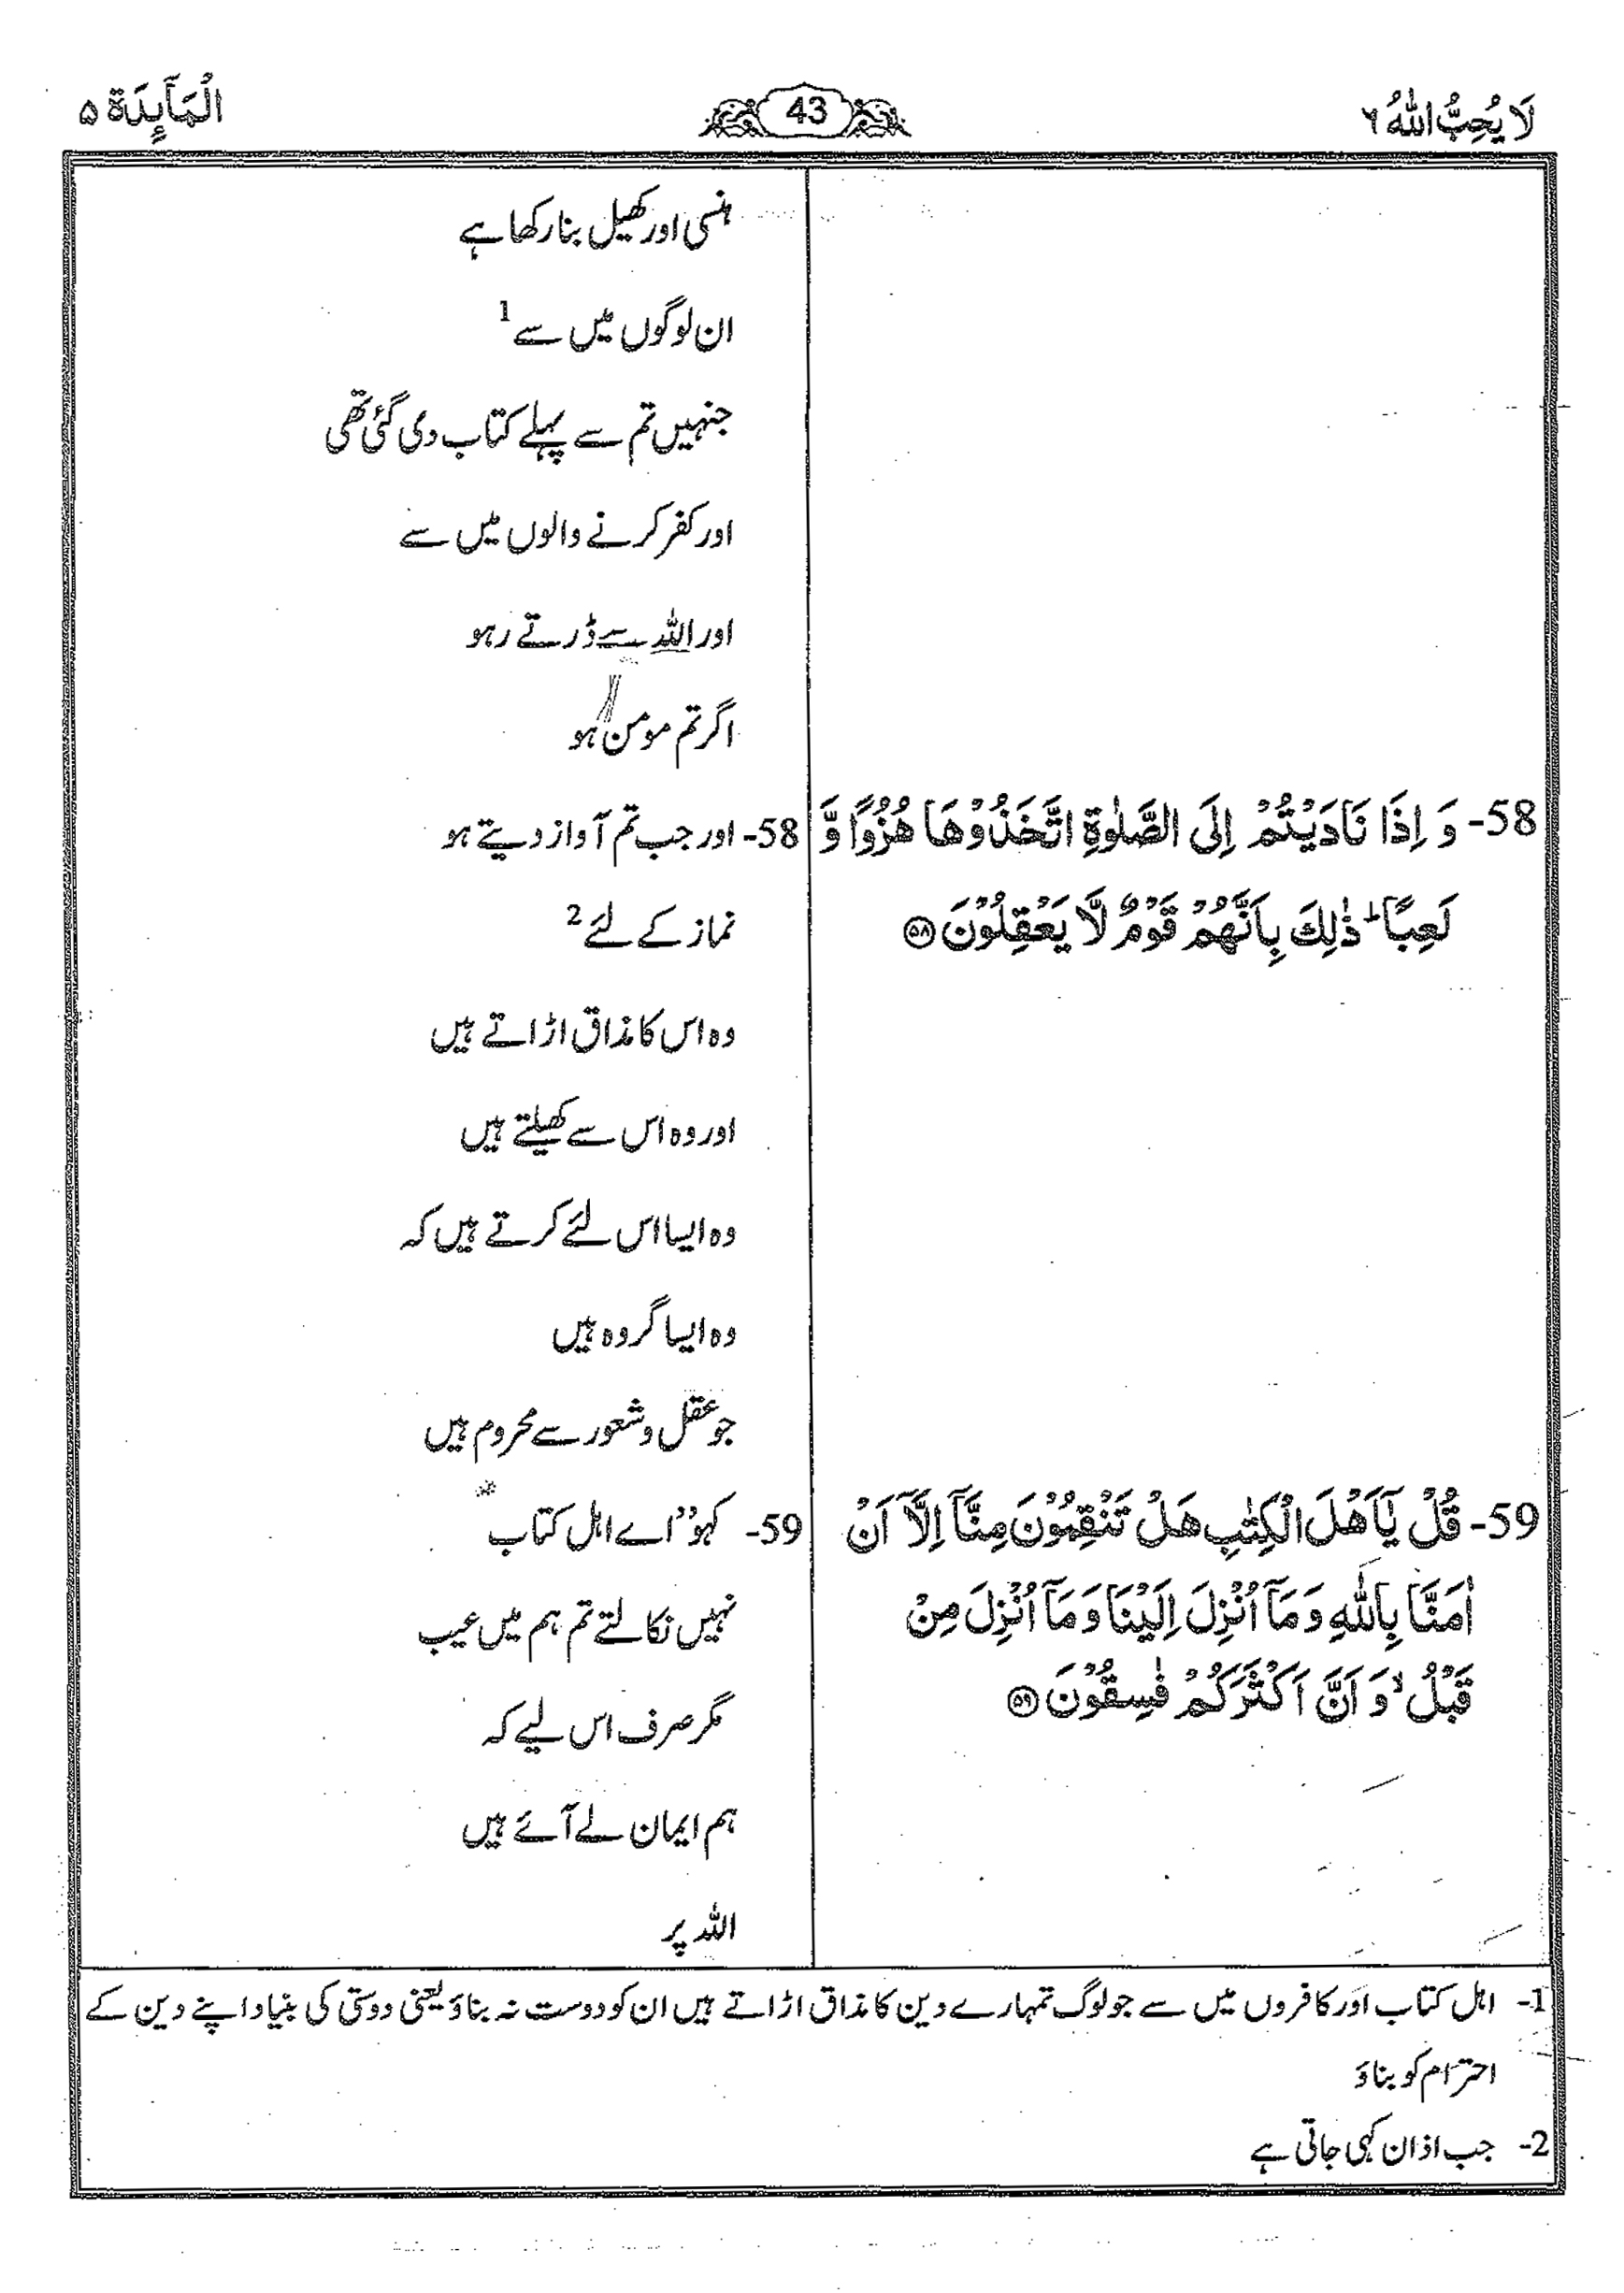 لَا يُحِبُّ اللّٰهُ ٦
43
الْمَآئِدَة ۵
ہنسی اور کھیل بنا رکھا ہے
ان لوگوں میں سے 1
جنہیں تم سے پہلے کتاب دی گئی تھی
اور کفر کرنے والوں میں سے
اور اللہ سے ڈرتے رہو
اگر تم مومن ہو
58- وَ اِذَا نَادَيْتُمْ اِلَى الصَّلٰوةِ اتَّخَذُوْهَا هُزُوًا وَّ
لَعِبًا ؕ ذٰلِكَ بِاَنَّهُمْ قَوْمٌ لَّا يَعْقِلُوْنَ ﴿۵۸﴾
58- اور جب تم آواز دیتے ہو
نماز کے لئے 2
وہ اس کا مذاق اڑاتے ہیں
اور وہ اس سے کھیلتے ہیں
وہ ایسا اس لئے کرتے ہیں کہ
وہ ایسا گروہ ہیں
جو عقل و شعور سے محروم ہیں
59- قُلْ يٰۤاَهْلَ الْكِتٰبِ هَلْ تَنْقِمُوْنَ مِنَّاۤ اِلَّاۤ اَنْ
اٰمَنَّا بِاللّٰهِ وَ مَاۤ اُنْزِلَ اِلَيْنَا وَ مَاۤ اُنْزِلَ مِنْ
قَبْلُ ۙ وَ اَنَّ اَكْثَرَكُمْ فٰسِقُوْنَ ﴿۵۹﴾
59- کہو ”اے اہل کتاب
نہیں نکالتے تم ہم میں عیب
مگر صرف اس لیے کہ
ہم ایمان لے آئے ہیں
اللہ پر
1- اہل کتاب اور کافروں میں سے جو لوگ تمہارے دین کا مذاق اڑاتے ہیں ان کو دوست نہ بناؤ یعنی دوستی کی بنیاد اپنے دین کے
احترام کو بناؤ
2- جب اذان کہی جاتی ہے